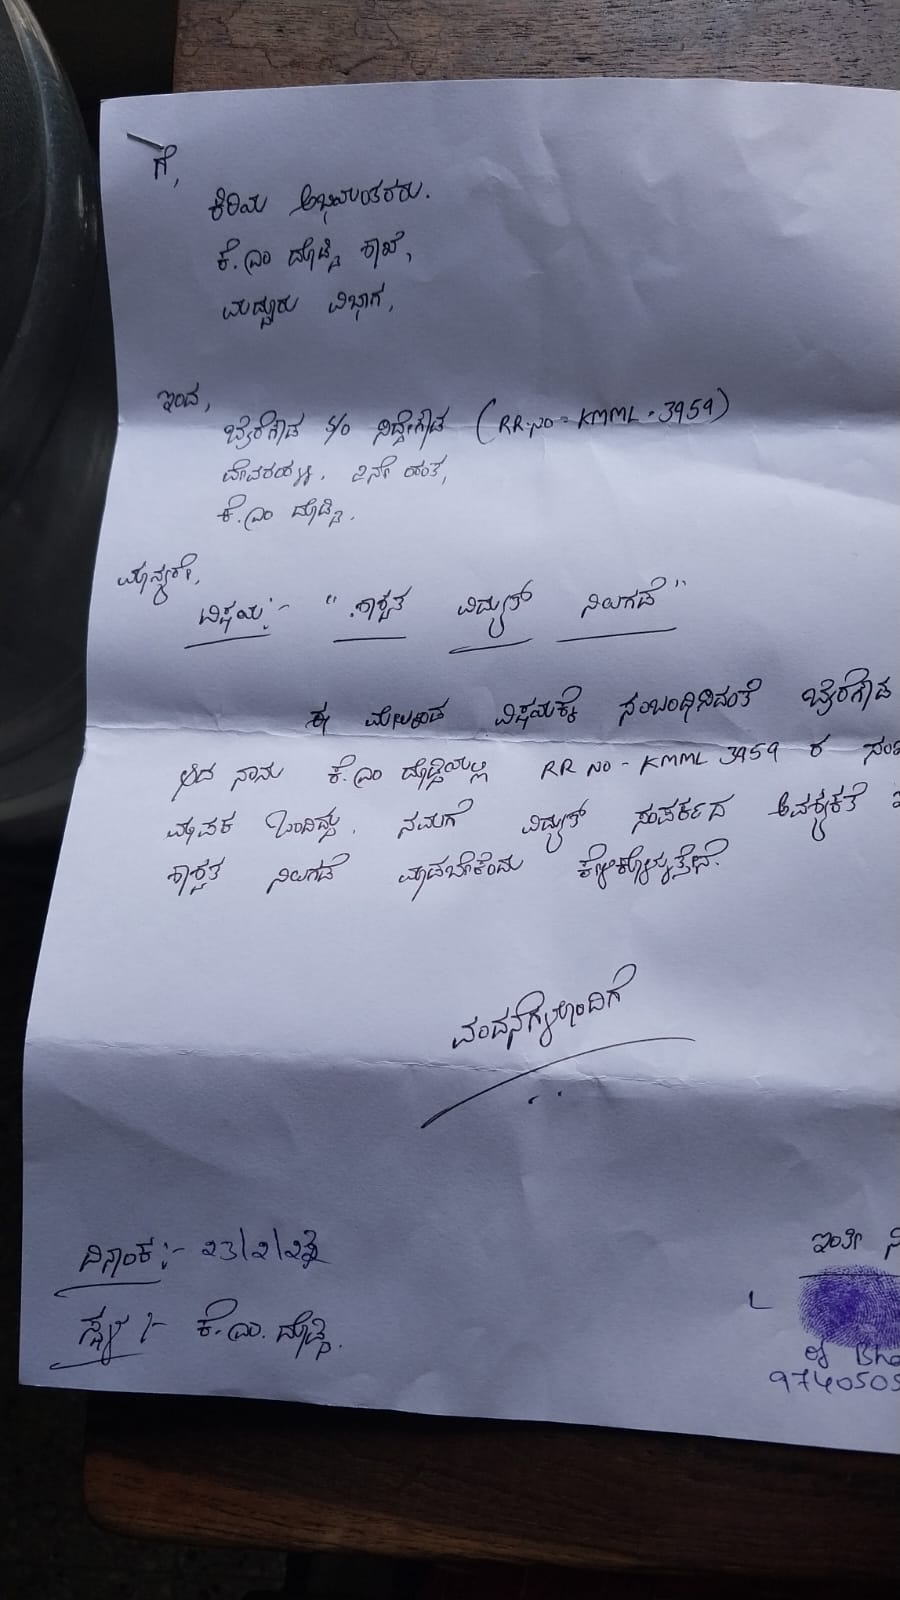 ಗೆ,
ಕಿರಿಯ ಅಭಿಯಂತರರು.
ಕೆ.ಎಂ ದೊಡ್ಡಿ ಶಾಖೆ,
ಮದ್ದೂರು ವಿಭಾಗ,
ಇಂದ,
ಬೈರೆಗೌಡ S/o ನಿದ್ದೇಗೌಡ (RR.NO = KMML - 3959)
ದೇವರಹಳ್ಳಿ. ೨ನೇ ಹಂತ,
ಕೆ.ಎಂ ದೊಡ್ಡಿ.
ಮಾನ್ಯರೇ,
ವಿಷಯ:- "ಶಾಶ್ವತ ವಿದ್ಯುತ್ ನಿಲುಗಡೆ"
ಈ ಮೇಲ್ಕಂಡ ವಿಷಯಕ್ಕೆ ಸಂಬಂಧಿಸಿದಂತೆ ಬೈರೆಗೌಡ
ಆದ ನಾನು ಕೆ.ಎಂ ದೊಡ್ಡಿಯಲ್ಲಿ RR NO - KMML 3959 ರ
ಮಾಪಕ ಹೊಂದಿದ್ದು. ನಮಗೆ ವಿದ್ಯುತ್ ಸಂಪರ್ಕದ ಅವಶ್ಯಕತೆ
ಶಾಶ್ವತ ನಿಲುಗಡೆ ಮಾಡಬೇಕೆಂದು ಕೇಳಿಕೊಳ್ಳುತ್ತೇನೆ.
ವಂದನೆಗಳೊಂದಿಗೆ
ದಿನಾಂಕ :- ೨3/2/೨೩
ಸ್ಥಳ :- ಕೆ.ಎಂ. ದೊಡ್ಡಿ.
ಇಂತೀ
9740505